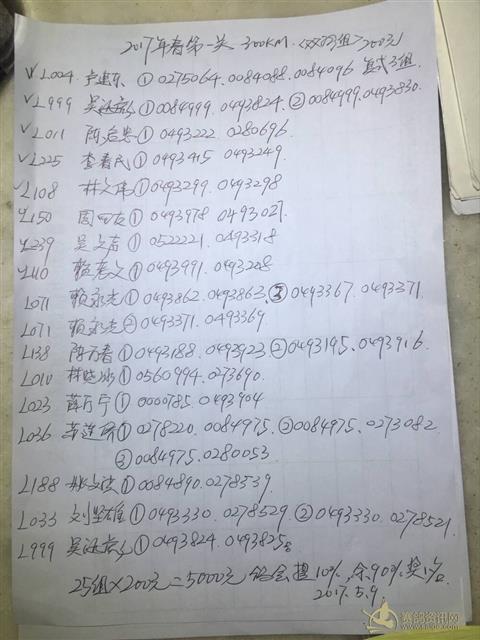 2017年春第一关 300KM.<双鸽组>200元
√L004 卢建东 ① 0275064.0084088.0084096 复式3组
√L999 ① 0084999.0493824.② 0084999.0493830.
√L011 ① 0493222 0280696.
√L225 李春民 ① 0493415 0493249.
√L108 林文伟 ① 0493299.0493298
√L150 周四友 ① 0493978 0493027.
√L239 吴文春 ① 0522221.0493318
√L110 ① 0493991.0493208
L071 赖永光 ① 0493862.0493863 ③ 0493367.0493371
L071 赖永光 ② 0493371.0493369
L138 陈万春 ① 0493188.0493923 ② 0493195.0493916.
L010 林 ① 0560994.0273690.
L023 薛万宁 ① 0000785.0493904
L036 ① 0278220.0084975.② 0084975.0273082
③ 0084975.0280053
L188 ① 0084890.0278539.
L033 刘坚雄 ① 0493330.0278529 ② 0493330.0278521
L999 ① 0493824.0493825
25组×200元=5000元 鸽会提10%,余90%奖1名.
2017.5.9.
赛鸽资讯网